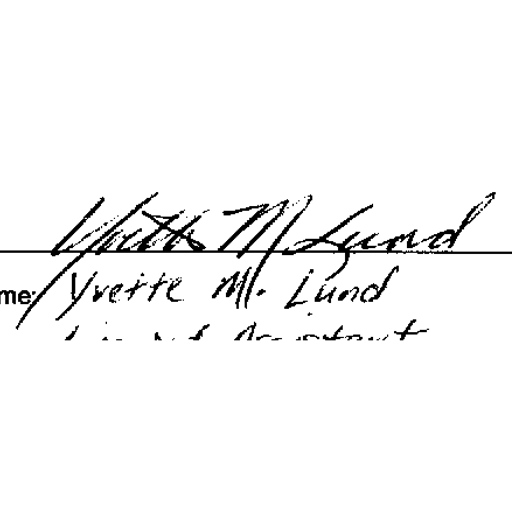 Yvette M Lund
me: Yvette M. Lund
Assistant